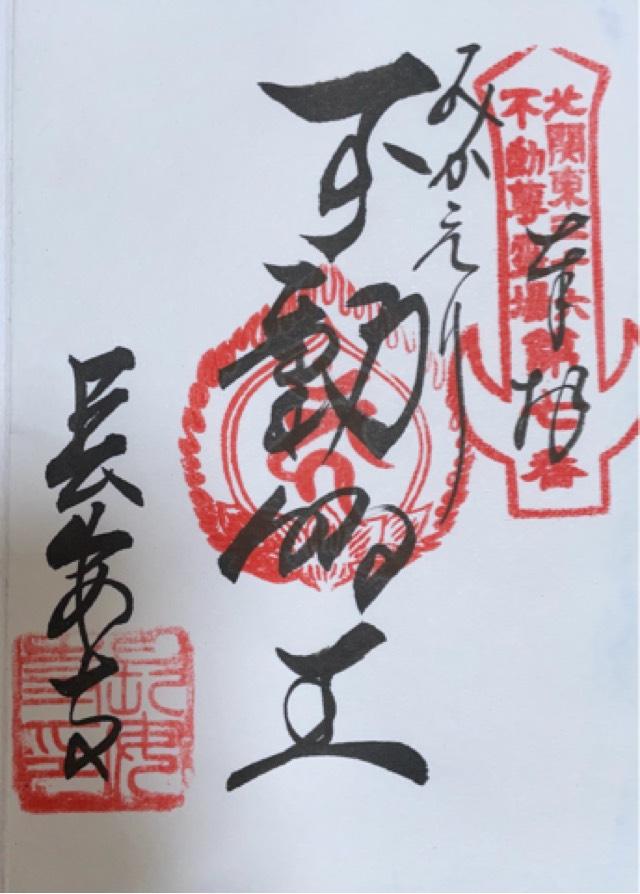 北関東三十六
不動尊霊場第七番
奉拝
みかえり
不動明王
長安寺